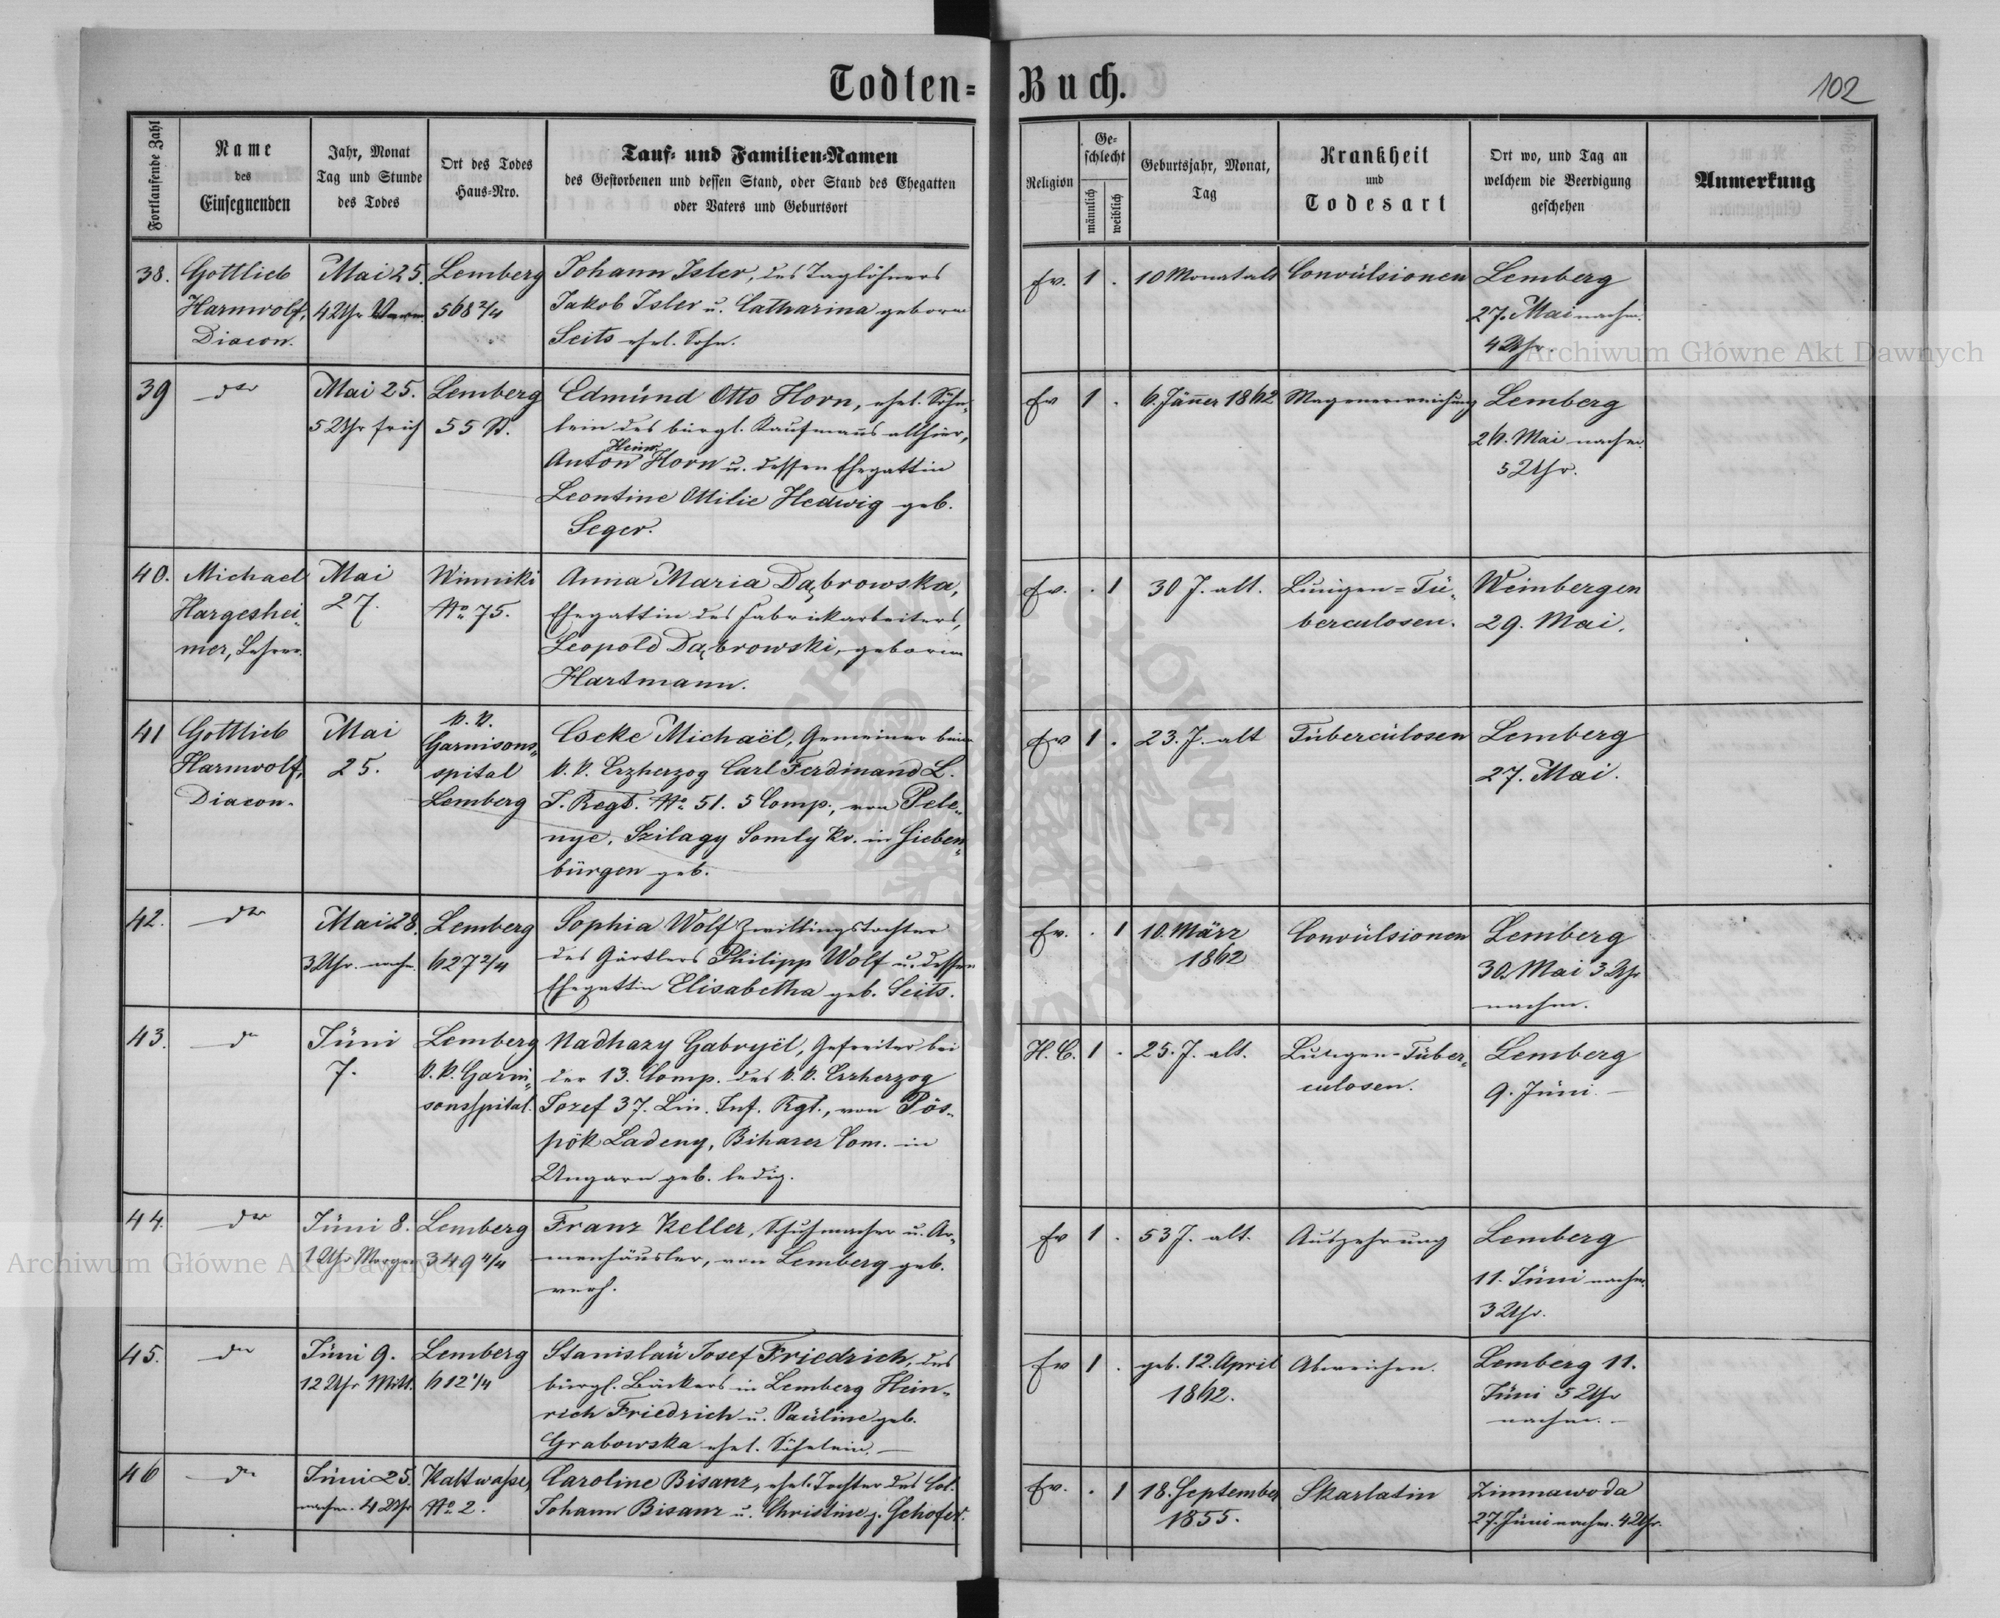 Todten-Buch.
102
Fortlaufende Zahl
Name
des
Einsegnenden
Jahr, Monat
Tag und Stunde
des Todes
Ort des Todes
Haus-Nro.
Tauf- und Familien-Namen
des Gestorbenen und dessen Stand, oder Stand des Ehegatten
oder Vaters und Geburtsort
Religion
Ge-
schlecht
männlich
weiblich
Geburtsjahr, Monat,
Tag
Krankheit
und
Todesart
Ort wo, und Tag an
welchem die Beerdigung
geschehen
Anmerkung
38. Gottlieb Mai 25. Lemberg Johann Isler, des Taglöhners
Harnwolf, 4 Uhr 568 2/4 Jakob Isler u. Catharina geborne
Diacon. Seits ehel. Sohn.
Ev. 1 . 10 Monat alt Convulsionen Lemberg
27. Mai nachm.
4 Uhr.
39 dto Mai 25. Lemberg Edmund Otto Horn, ehel. Söhn-
5 Uhr früh 55 St. lein des bürgl. Kaufmanns allhier,
Heinr.
Anton Horn u. dessen Ehegattin
Leontine Ottilie Hedwig geb.
Seger.
Ev 1 . 6. Jänner 1862 Magenerweichung Lemberg
26. Mai nachm.
5 Uhr.
40. Michael Mai Winniki Anna Maria Dąbrowska,
Hargeshei- 27. No 75. Ehegattin des Fabrikarbeiters,
mer, Lehrer. Leopold Dąbrowski, geborne
Hartmann.
Ev. . 1 30 J. alt. Lungen=Tu- Weinbergen
berculosen. 29. Mai.
41 Gottlieb Mai k. k. Cseke Michaël, Gemeiner beim
Harnwolf, 25. Garnisons- k. k. Erzherzog Carl Ferdinand L.
Diacon. spital I. Regt. No 51. 5 Comp., von Pele-
Lemberg nye, Szilagy Somly Kr. in Sieben-
bürgen geb.
Ev 1 . 23. J. alt Tuberculosen Lemberg
27. Mai.
42. dto Mai 28. Lemberg Sophia Wolf Zwillingstochter
3 Uhr nachm. 627 2/4 des Gärtlers Philipp Wolf u. dessen
Ehegattin Elisabetha geb. Seits.
Ev. . 1 10. März Convulsionen Lemberg
1862 30. Mai 3 Uhr
nachm.
43. dto Juni Lemberg Nadhazy Gabryël, Gefreiter bei
7. k. k. Garni- der 13. Comp. des k. k. Erzherzog
sonsspital. Jozef 37. Lin. Inf. Rgt., von Pös-
pök Ladeny, Biharer Com. in
Ungarn geb. ledig.
H. C. 1 . 25. J. alt. Lungen-Tuber- Lemberg
culosen. 9. Juni.
44. dto Juni 8. Lemberg Franz Keller, Schuhmacher u. Ar-
1 Uhr Morgen 349 4/4 menhäusler, von Lemberg geb.
verh.
Ev 1 . 53 J. alt. Auszehrung Lemberg
11. Juni nachm.
3 Uhr.
45. dto Juni 9. Lemberg Stanislau Josef Friedrich, des
12 Uhr Mitt. 612 1/4 bürgl. Bäckers in Lemberg Hein-
rich Friedrich u. Pauline geb.
Grabowska ehel. Söhnlein. —
Ev 1 . geb. 12. April Abweichen. Lemberg 11.
1862. Juni 5 Uhr
nachm. —
46 dto Juni 25. Kaltwasser Caroline Bisanz, ehel. Tochter des Col.
nachm. 4 Uhr No 2. Johann Bisanz u. Christine g. Schofer.
Ev. . 1 18. September Skarlatin Zimnawoda
1855. 27. Juni nachm. 4 Uhr.
Archiwum Główne Akt Dawnych
Archiwum Główne Akt Dawnych